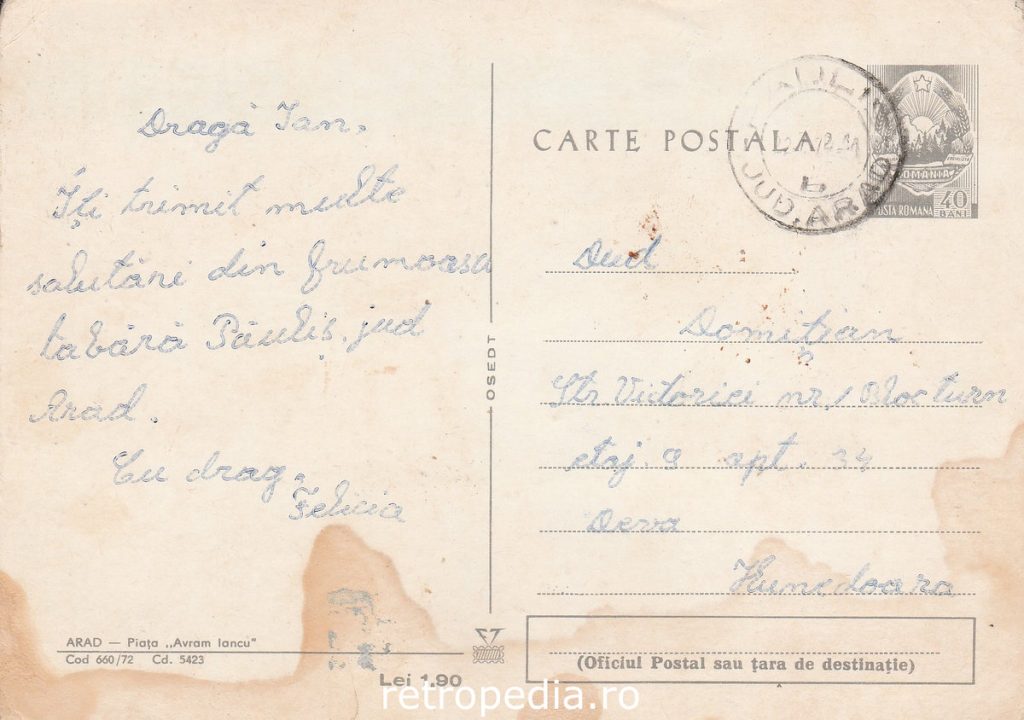 Dragă Ian,
Îți trimit multe
salutări din frumoasa
tabără Păuliș, jud
Arad.
Cu drag,
Felicia
ARAD — Piața „Avram Iancu”
Cod 660/72 Cd. 5423
Lei 1,90
OSEDT
CARTE POSTALA
JUD. ARAD
ROMANIA
POSTA ROMANA
40
BANI
Dud
Domițian
Str Victoriei nr 1 Bloc turn
etaj. 9 apt. 34
Deva
Hunedoara
(Oficiul Postal sau țara de destinație)
retropedia.ro